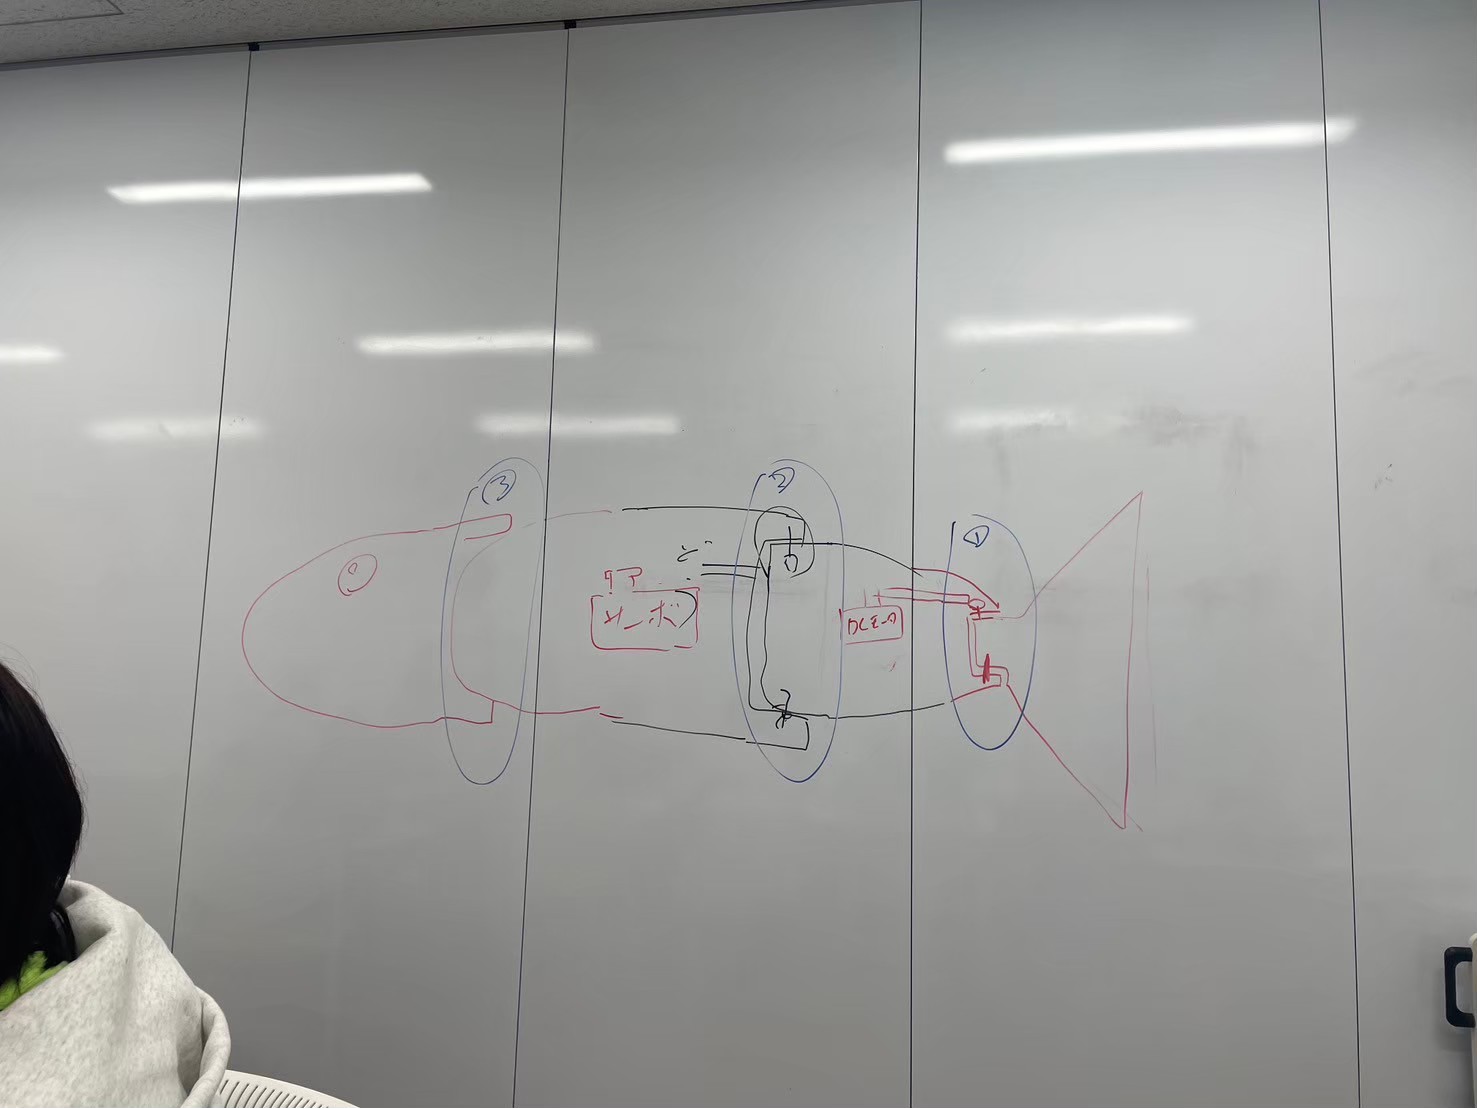 ③
②
①
リア
サーボ
DCモータ